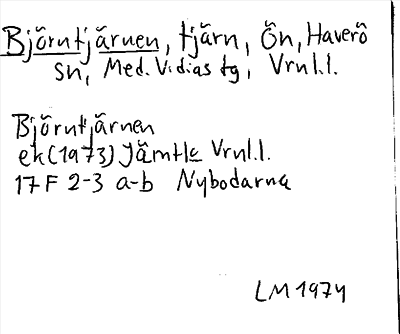 Björntjärnen, tjärn, Ön, Haverö
sn, Med.Vidias tg, Vrnl.l.
Björntjärnen
ek(1973) Jämtlc Vrnl.l.
17F 2-3 a-b Nybodarna
LM 1974